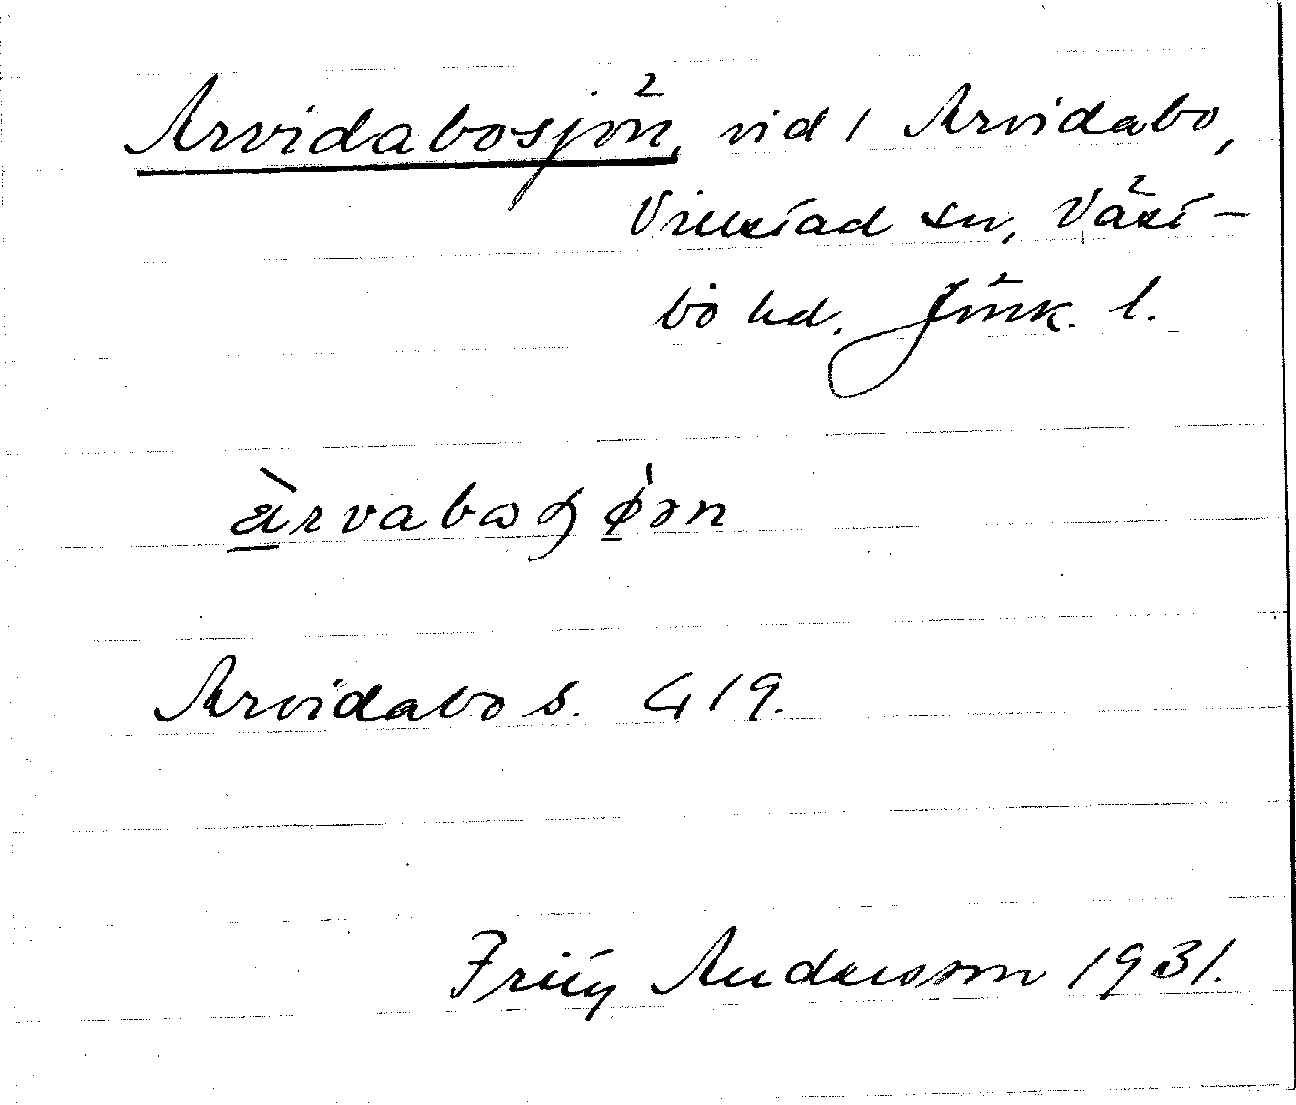 Arvidabosjön, vid 1 Arvidabo,
Villstad sn, Väst-
bo hd. Jönk. l.
àrvaboɧø̀ən
Arvidabo s. G 19.
Fritz Andersson 1931.